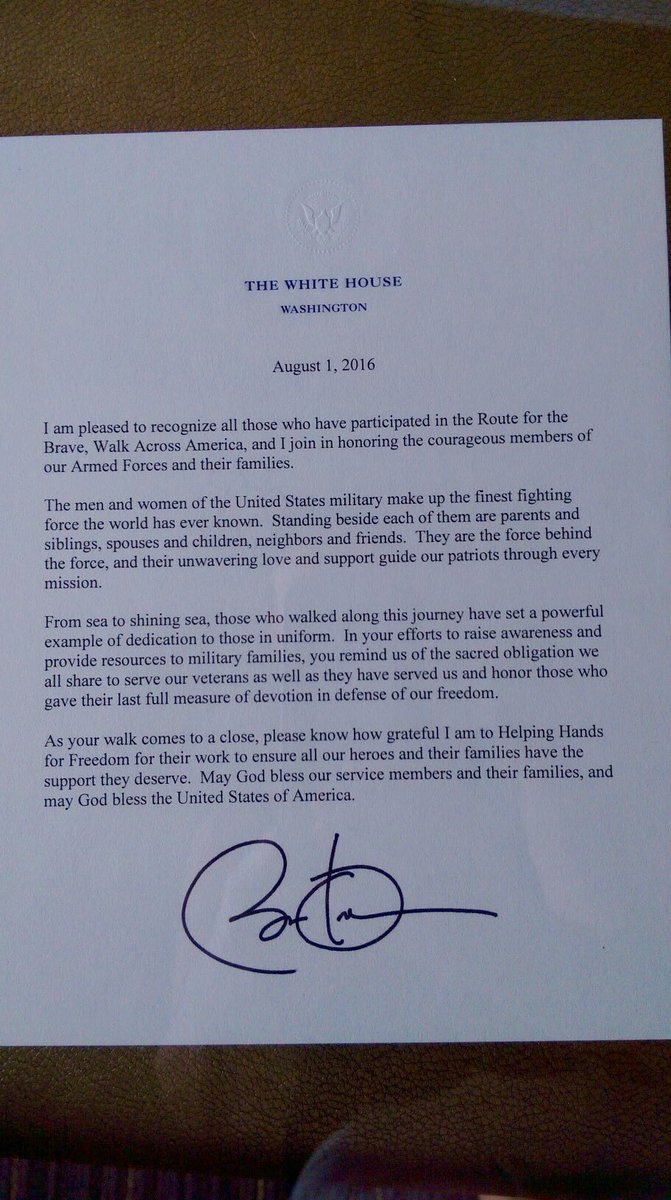 THE WHITE HOUSE
WASHINGTON
August 1, 2016
I am pleased to recognize all those who have participated in the Route for the
Brave, Walk Across America, and I join in honoring the courageous members of
our Armed Forces and their families.
The men and women of the United States military make up the finest fighting
force the world has ever known.  Standing beside each of them are parents and
siblings, spouses and children, neighbors and friends.  They are the force behind
the force, and their unwavering love and support guide our patriots through every
mission.
From sea to shining sea, those who walked along this journey have set a powerful
example of dedication to those in uniform.  In your efforts to raise awareness and
provide resources to military families, you remind us of the sacred obligation we
all share to serve our veterans as well as they have served us and honor those who
gave their last full measure of devotion in defense of our freedom.
As your walk comes to a close, please know how grateful I am to Helping Hands
for Freedom for their work to ensure all our heroes and their families have the
support they deserve.  May God bless our service members and their families, and
may God bless the United States of America.